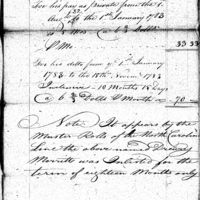 for his pay as private from the 1
Augt 82 to the 1st January 1783
is 5 Mos @ 6 2/3 Dolls
P Mo 33 33
For his do from 1st January
1783 to the 18th Novem. 1783
Inclusive 10 Months 18 days
@ 6 2/3 Dolls P Month 70
Note It appears by the
Muster Rolls of the North Carolina
Line the above named
Merritt was Enlisted for the
term of eighteen Months only